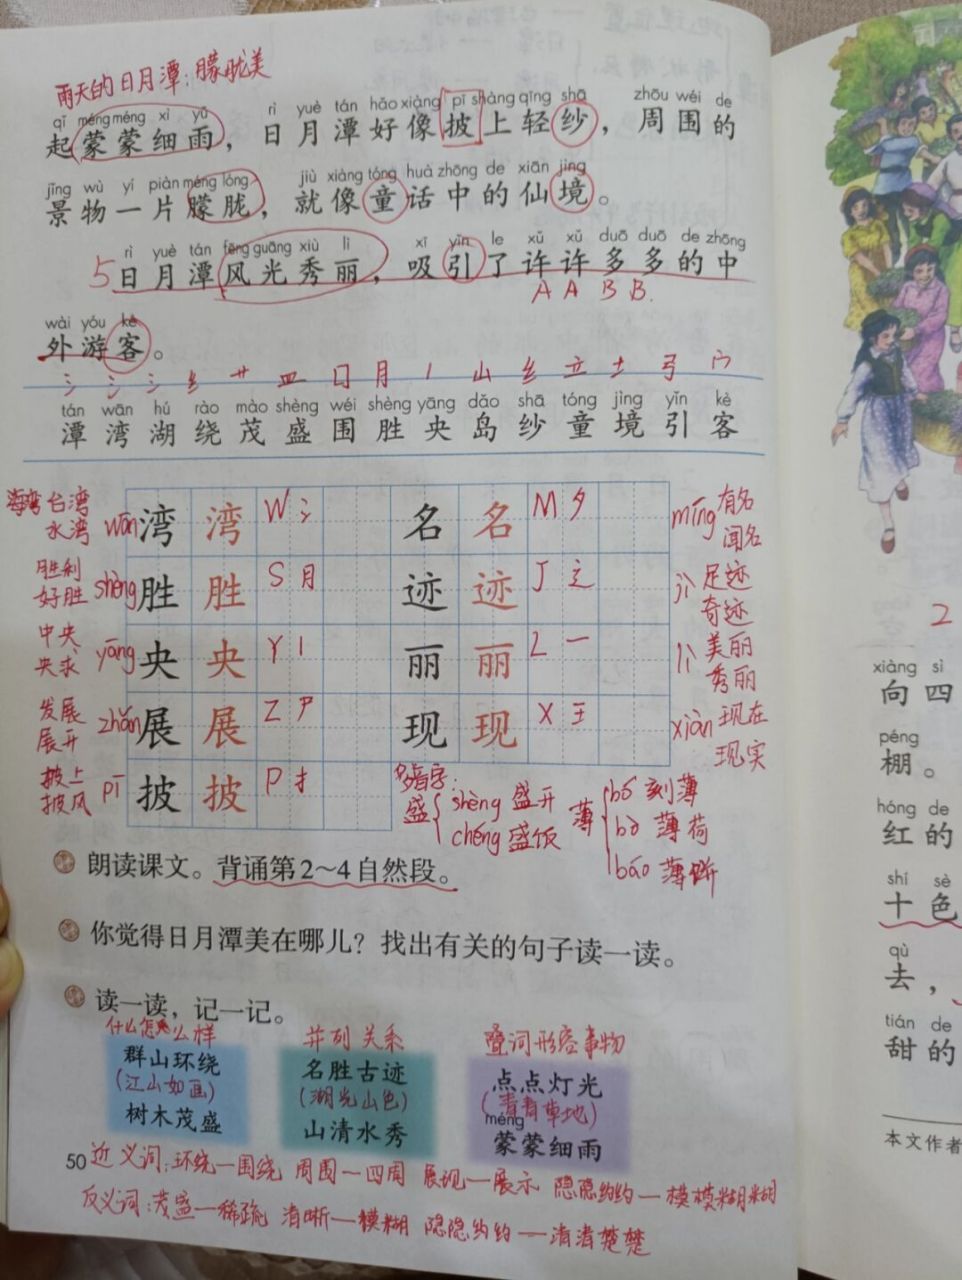 雨天的日月潭：朦胧美
qǐ méng méng xì yǔ rì yuè tán hǎo xiàng pī shàng qīng shā zhōu wéi de
起蒙蒙细雨，日月潭好像披上轻纱，周围的
jǐng wù yí piàn méng lóng jiù xiàng tóng huà zhōng de xiān jìng
景物一片朦胧，就像童话中的仙境。
rì yuè tán fēng guāng xiù lì xī yǐn le xǔ xǔ duō duō de zhōng
5日月潭风光秀丽，吸引了许许多多的中
A A B B.
wài yóu kè
外游客。
氵 氵 氵 纟 艹 皿 囗 月 丨 山 纟 立 土 弓 宀
tán wān hú rào mào shèng wéi shèng yāng dǎo shā tóng jìng yǐn kè
潭 湾 湖 绕 茂 盛 围 胜 央 岛 纱 童 境 引 客
海湾 台湾 水湾 wān 湾 湾 W 氵 名 名 M 夕 míng 有名 闻名
胜利 好胜 shèng 胜 胜 S 月 迹 迹 J 辶 jì 足迹 奇迹
中央 央求 yāng 央 央 Y 丨 丽 丽 L 一 lì 美丽 秀丽
发展 展开 zhǎn 展 展 Z 尸 现 现 X 王 xiàn 现在 现实
披上 披风 pī 披 披 P 扌
多音字：
盛 shèng 盛开 chéng 盛饭 薄 bó 刻薄 bò 薄荷 báo 薄饼
朗读课文。背诵第2～4自然段。
你觉得日月潭美在哪儿？找出有关的句子读一读。
读一读，记一记。
什么怎么样 并列关系 叠词形容事物
群山环绕 名胜古迹 点点灯光
(江山如画) (湖光山色) (青青草地)
méng
树木茂盛 山清水秀 蒙蒙细雨
50 近义词：环绕—围绕 周围—四周 展现—展示 隐隐约约—模模糊糊
反义词：茂盛—稀疏 清晰—模糊 隐隐约约—清清楚楚
2
xiàng sì
向四
péng
棚。
hóng de
红的
shí sè
十色
qù
去，
tián de
甜的
本文作者